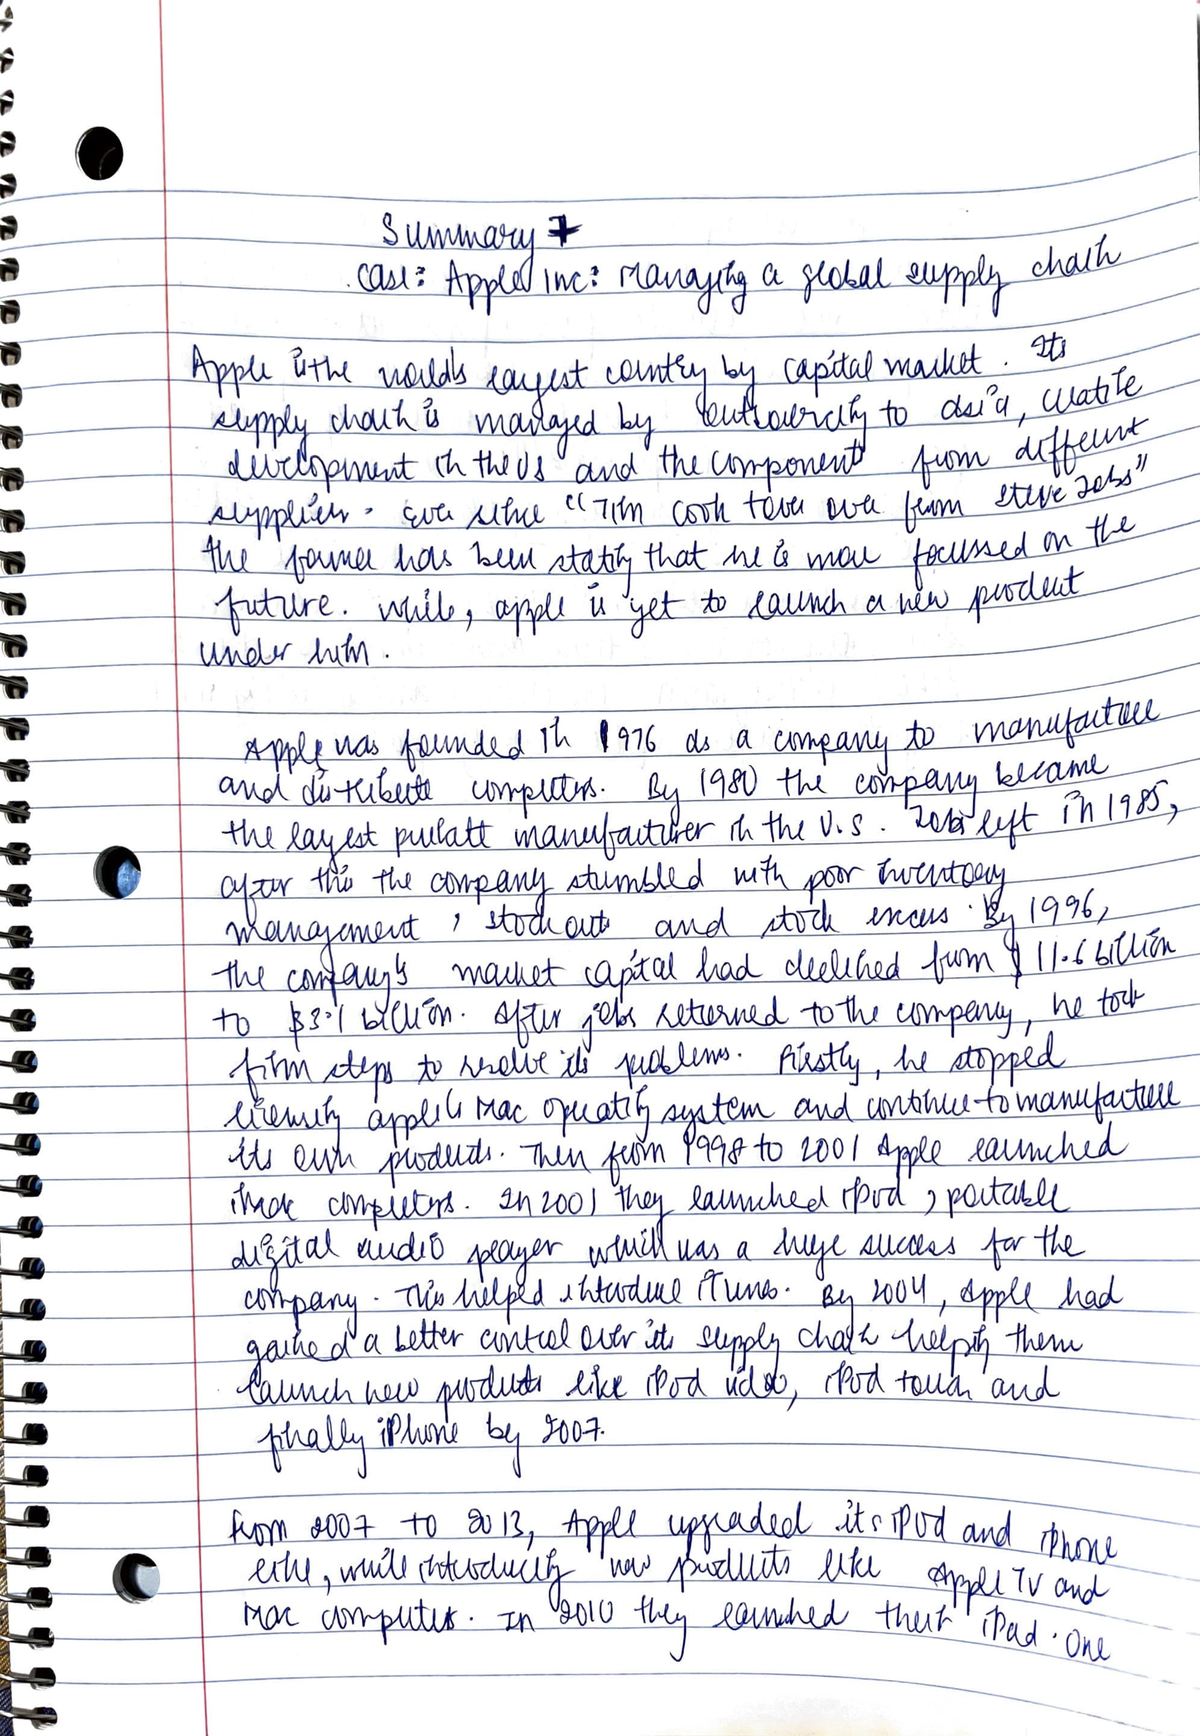 Summary 7
Case: Apple Inc: Managing a global supply chain
Apple is the world's largest country by capital market. Its
supply chain is managed by outsourcing to Asia, creative
development in the US and the component from different
suppliers. Ever since "Tim Cook took over from Steve Jobs"
the former has been stating that he is more focussed on the
future. While, apple is yet to launch a new product
under him.
Apple was founded in 1976 as a company to manufacture
and distribute computers. By 1980 the company became
the largest manufacturer in the U.S. Jobs left in 1985,
after this the company stumbled with poor inventory
management, stock outs and stock excess. By 1996,
the company's market capital had declined from $11.6 billion
to $3.1 billion. After jobs returned to the company, he took
firm steps to resolve its problems. Firstly, he stopped
licensing apple's Mac operating system and continue to manufacture
its own products. Then from 1998 to 2001 Apple launched
iMac computers. In 2001 they launched iPod, portable
digital audio player which was a huge success for the
company. This helped introduce iTunes. By 2004, Apple had
gained a better control over its supply chain helping them
launch new products like iPod video, iPod touch and
finally iPhone by 2007.
From 2007 to 2013, Apple upgraded its iPod and iPhone
line, while introducing new products like Apple TV and
Mac computers. In 2010 they launched their iPad. One